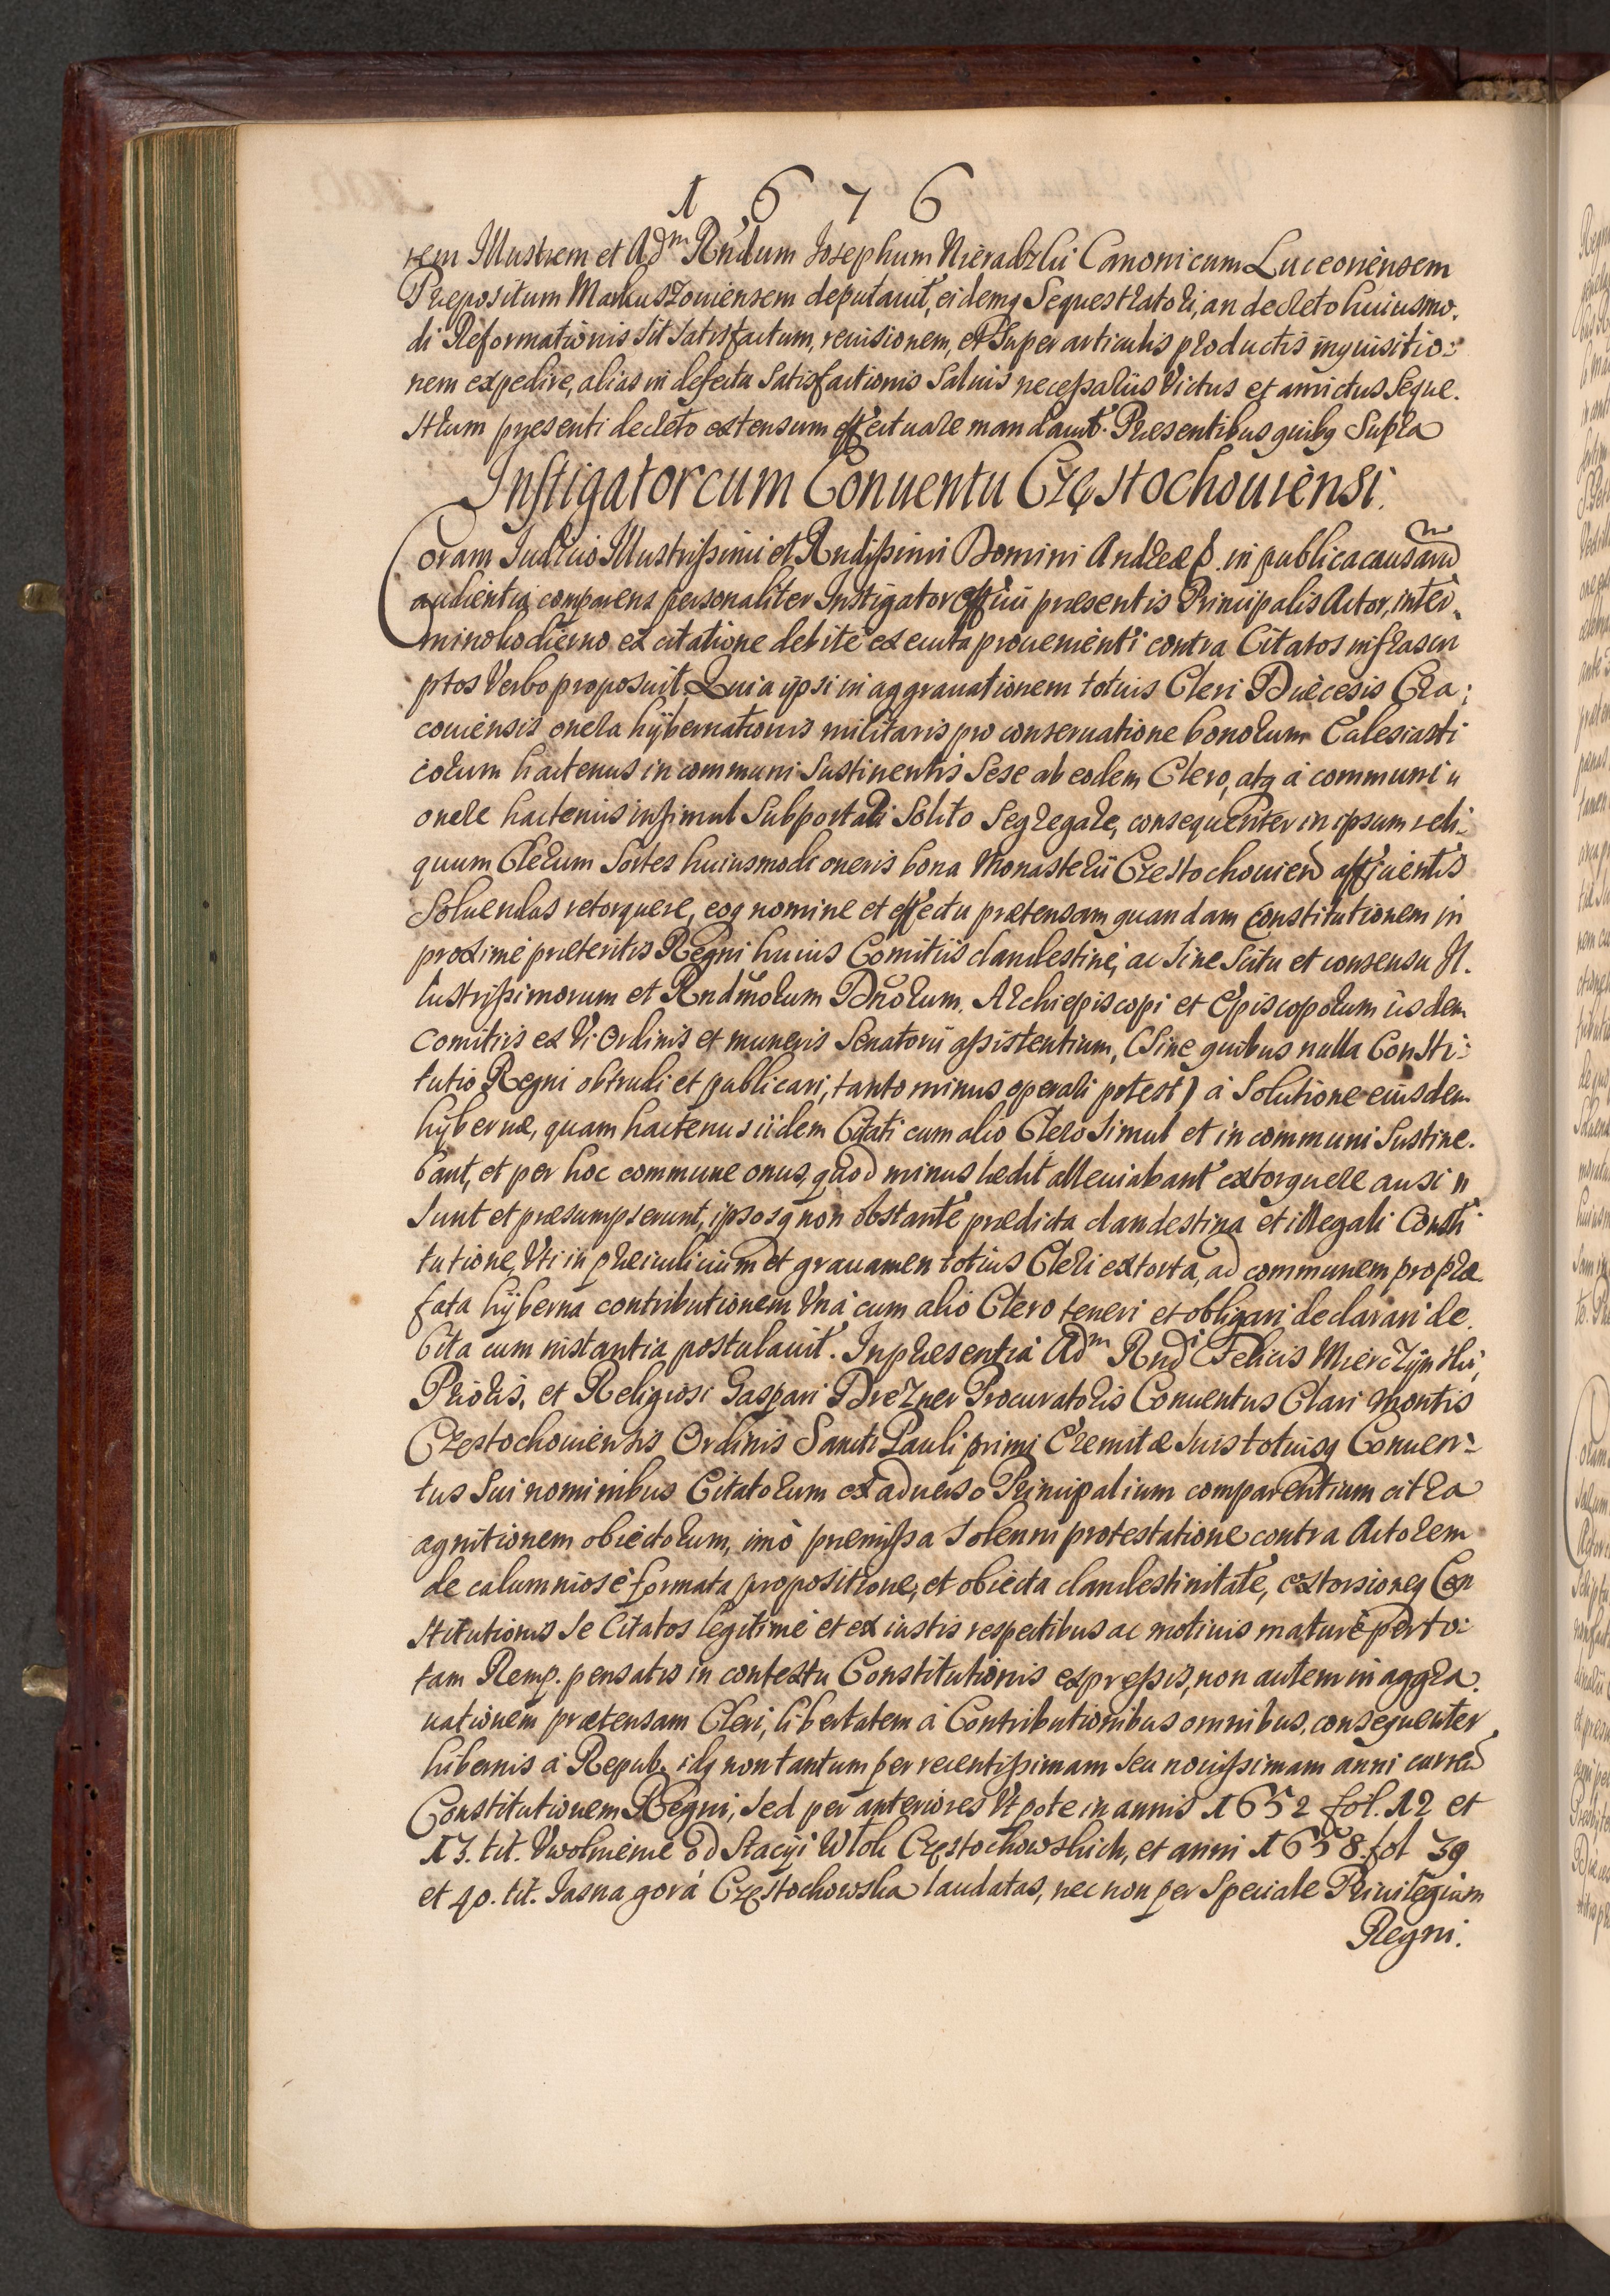 1676
rem Illustrem et Adm Rndum Josephum Nieradzki Canonicum Luceoriensem
Præpositum Markuszouiensem deputauit, eidemq Sequestratori, an decreto huiusmo-
di Reformationis sit satisfactum, reuisionem, et super articulis productis inquisitio-
nem expedire, alias in defectu Satisfactionis Saluis necessariis Victus et amictus Seque-
strum præsenti decreto extensum effectuare mandauit. Præsentibus quibq Supra
Instigator cum Conuentu Częstochouiensi.
Coram Iudicio Illustrissimi et Rndissimi Domini Andreæ p. in publica causarum
audientia comparens personaliter Instigator Officii præsentis Principalis Actor, in ter-
mino hodierno ex citatione debite executa proueniénti contra Citatos infrascri
ptos Verbo proposuit, Quia ipsi in aggrauationem totius Cleri Diæcesis Cra-
couiensis onera hybernationis militaris pro conseruatione bonorum Ecclesiasti
corum hactenus in communi Sustinentis Sese ab eodem Clero, atq à communi
onere hactenus insimul Subportari Solito Segregare, consequenter in ipsum reli-
quum Clerum Sortes huiusmodi oneris bona Monasterii Czestochouien afficientis
Soluendas retorquere, eoq nomine et effectu prætensam quandam Constitutionem in
proximè præteritis Regni huius Comitiis clandestinè, ac Sine Scitu et consensu Il-
lustrissimorum et Rndmorum Dnorum. Archiepiscopi et Episcoporum iisdem
Comitiis ex Vi Ordinis et muneris Senatorii assistentium, (Sine quibus nulla Consti-
tutio Regni obtrudi et publicari, tanto minus operari potest) à Solutione eiusdem
hybernæ, quam hactenus iidem Citati cum alio Clero Simul et in communi Sustine-
bant, et per hoc commune onus, quod minus lædit alleuiabant extorquere ausi
Sunt et præsumpserunt, ipsosq non obstante prædicta clandestina et illegali Consti
tutione, Vti in præiudicium et grauamen totius Cleri extorta, ad communem pro præ
fata hyberna contributionem Vnà cum alio Clero teneri et obligari, declarari de-
bita cum instantia postulauit. In præsentia Adm Rndi Felicis Mierczynski,
Prioris, et Religiosi Gaspari Drezner Procuratoris Conuentus Clari Montis
Częstochouiensis Ordinis Sancti Pauli primi Eremitæ Suis totiusq Conuen-
tus Sui nominibus Citatorum ex aduerso Principalium comparentium citra
agnitionem obiectorum, imò præmissa Solenni protestatione contra Actorem
de calumniosè formata propositione, et obiecta clandestinitate, extorsioneq Con
stitutionis Se Citatos legitimè et ex iustis respectibus ac motiuis maturè per to-
tam Remp. pensatis in contextu Constitutionis expressis, non autem in aggra-
uationem prætensam Cleri, libertatem à Contributionibus omnibus, consequenter
hibernis à Repub. idq non tantum per recentissimam Seu nouissimam anni curren
Constitutionem Regni, Sed per anteriores Vt pote in annis 1652 fol. 12 et
13. tit. Vwolnienie od Stacyi Włok Częstochowskich, et anni 1658. fol 39
et 40. tit. Iasna gora Częstochowska laudatas, nec non per Speciale Priuilegium
Regni.